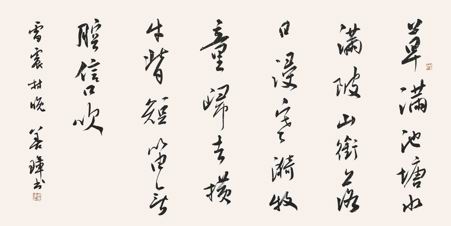 草滿池塘水
滿陂山銜落
日浸寒漪牧
童歸去橫
牛背短笛無
腔信口吹
雷震村晚 书